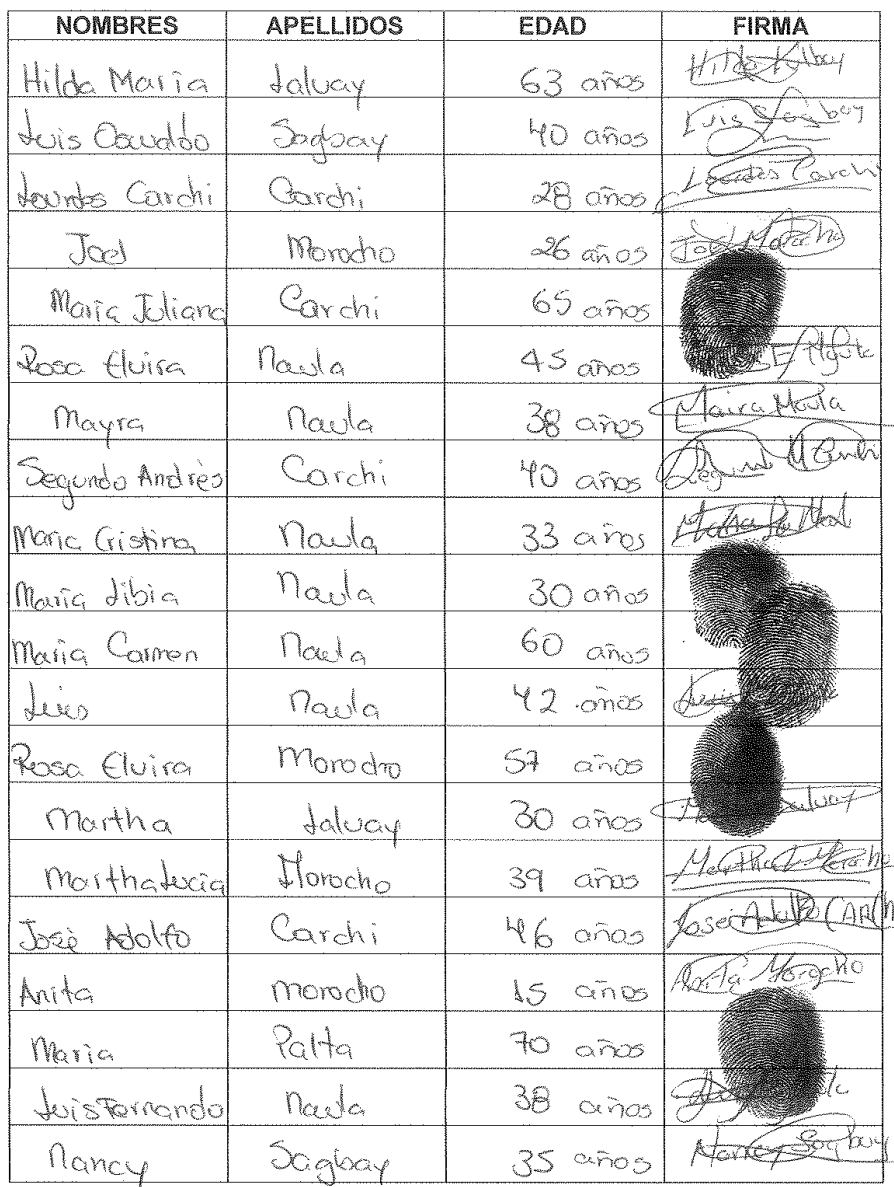 NOMBRES APELLIDOS EDAD FIRMA
Hilda María Jaluay 63 años Hilda
Luis Oswaldo Sagbay 40 años Luis Sagbay
Lourdes Carchi Carchi 28 años Lourdes Carchi
Joel Morocho 26 años Joel Morocho
María Juliana Carchi 65 años
Rosa Elvira Naula 45 años
Mayra Naula 38 años Maira Naula
Segundo Andrès Carchi 40 años Segundo
Maria Cristina Naula 33 años
María Libia Naula 30 años
María Carmen Naula 60 años
Luis Naula 42 años Luis
Rosa Elvira Morocho 57 años
Martha Jaluay 30 años
Martha Lucía Morocho 39 años Martha L Morocho
Josè Adolfo Carchi 46 años Jose Adolfo CARCHI
Anita Morocho 15 años Anita Morocho
Maria Palta 70 años
Luis Fernando Naula 38 años
Nancy Sagbay 35 años Nancy Sagbay